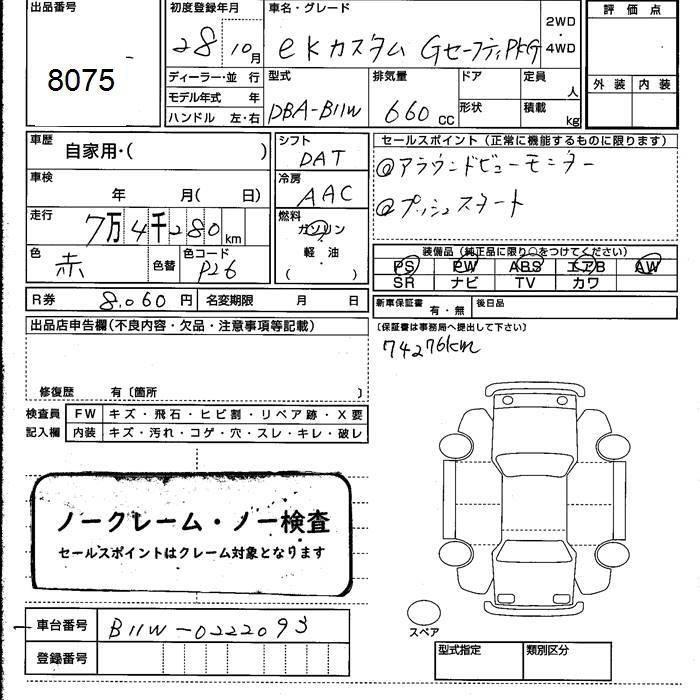 出品番号
8075
初度登録年月
28 10月
車名・グレード
eKカスタム GセーフティPKG
2WD
・
4WD
評価点
外装 内装
ディーラー・並 行
モデル年式 年
ハンドル 左・右
型式
DBA-B11W
排気量
660 cc
ドア
形状
定員
人
積載
kg
車歴
自家用・( )
車検
年 月( 日)
走行
7万4千280 km
色
赤
色替
色コード
P26
シフト
DAT
冷房
AAC
燃料
ガソリン
軽油
( )
セールスポイント (正常に機能するものに限ります)
◎アラウンドビューモニター
◎プッシュスタート
装備品 (純正品に限り○をつけてください)
PS PW ABS エアB AW
SR ナビ TV カワ
R券 8,060円 名変期限 月 日
新車保証書 有・無 後日品
(保証書は事務局へ提出して下さい)
74276km
出品店申告欄(不良内容・欠品・注意事項等記載)
修復歴 有〔箇所 〕
検査員 FW キズ・飛石・ヒビ割・リペア跡・X要
記入欄 内装 キズ・汚れ・コゲ・穴・スレ・キレ・破レ
ノークレーム・ノー検査
セールスポイントはクレーム対象となります
車台番号 B11W-0222093
登録番号
スペア
型式指定 類別区分